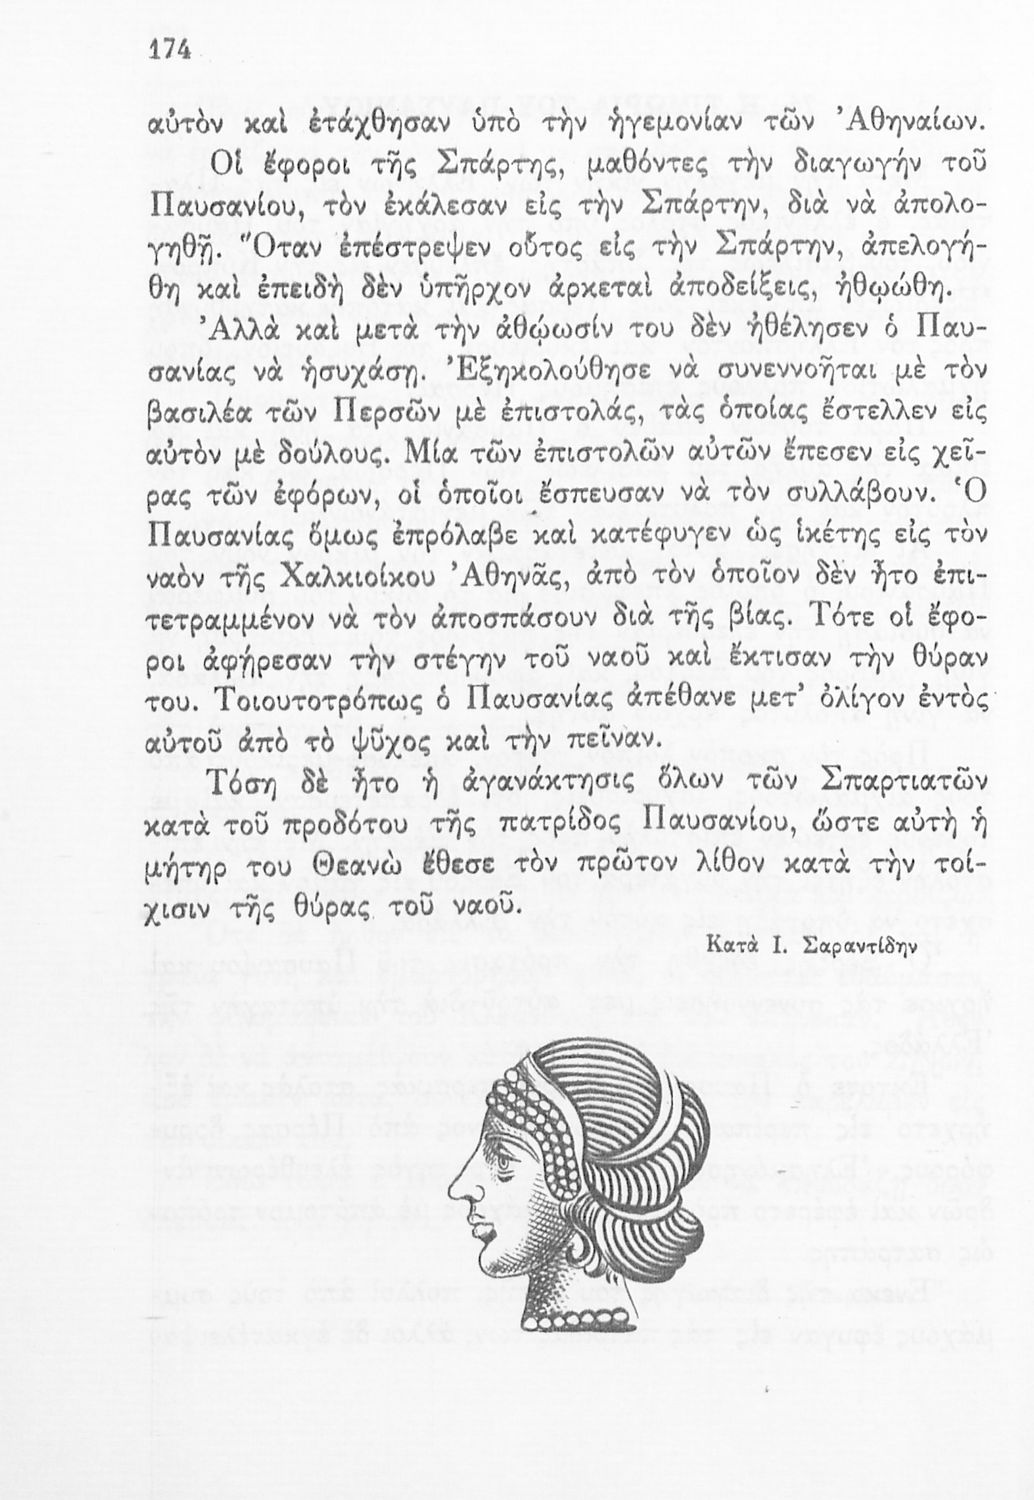 174
αὐτὸν καὶ ἐτάχθησαν ὑπὸ τὴν ἡγεμονίαν τῶν Ἀθηναίων.
Οἱ ἔφοροι τῆς Σπάρτης, μαθόντες τὴν διαγωγήν τοῦ
Παυσανίου, τὸν ἐκάλεσαν εἰς τὴν Σπάρτην, διὰ νὰ ἀπολο-
γηθῇ. Ὅταν ἐπέστρεψεν οὗτος εἰς τὴν Σπάρτην, ἀπελογή-
θη καὶ ἐπειδὴ δὲν ὑπῆρχον ἀρκεταὶ ἀποδείξεις, ἠθῳώθη.
Ἀλλὰ καὶ μετὰ τὴν ἀθῴωσίν του δὲν ἠθέλησεν ὁ Παυ-
σανίας νὰ ἡσυχάσῃ. Ἐξηκολούθησε νὰ συνεννοῆται μὲ τὸν
βασιλέα τῶν Περσῶν μὲ ἐπιστολάς, τὰς ὁποίας ἔστελλεν εἰς
αὐτὸν μὲ δούλους. Μία τῶν ἐπιστολῶν αὐτῶν ἔπεσεν εἰς χεῖ-
ρας τῶν ἐφόρων, οἱ ὁποῖοι ἔσπευσαν νὰ τὸν συλλάβουν. Ὁ
Παυσανίας ὅμως ἐπρόλαβε καὶ κατέφυγεν ὡς ἱκέτης εἰς τὸν
ναὸν τῆς Χαλκιοίκου Ἀθηνᾶς, ἀπὸ τὸν ὁποῖον δὲν ἦτο ἐπι-
τετραμμένον νὰ τὸν ἀποσπάσουν διὰ τῆς βίας. Τότε οἱ ἔφο-
ροι ἀφῄρεσαν τὴν στέγην τοῦ ναοῦ καὶ ἔκτισαν τὴν θύραν
του. Τοιουτοτρόπως ὁ Παυσανίας ἀπέθανε μετ’ ὀλίγον ἐντὸς
αὐτοῦ ἀπὸ τὸ ψῦχος καὶ τὴν πεῖναν.
Τόση δὲ ἦτο ἡ ἀγανάκτησις ὅλων τῶν Σπαρτιατῶν
κατὰ τοῦ προδότου τῆς πατρίδος Παυσανίου, ὥστε αὐτὴ ἡ
μήτηρ του Θεανὼ ἔθεσε τὸν πρῶτον λίθον κατὰ τὴν τοί-
χισιν τῆς θύρας τοῦ ναοῦ.
Κατὰ Ι. Σαραντίδην